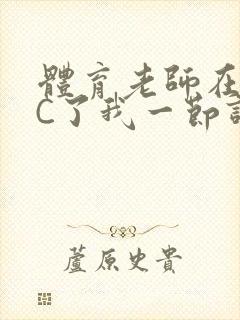 體育老師在
C了我一節
蘆原史貴